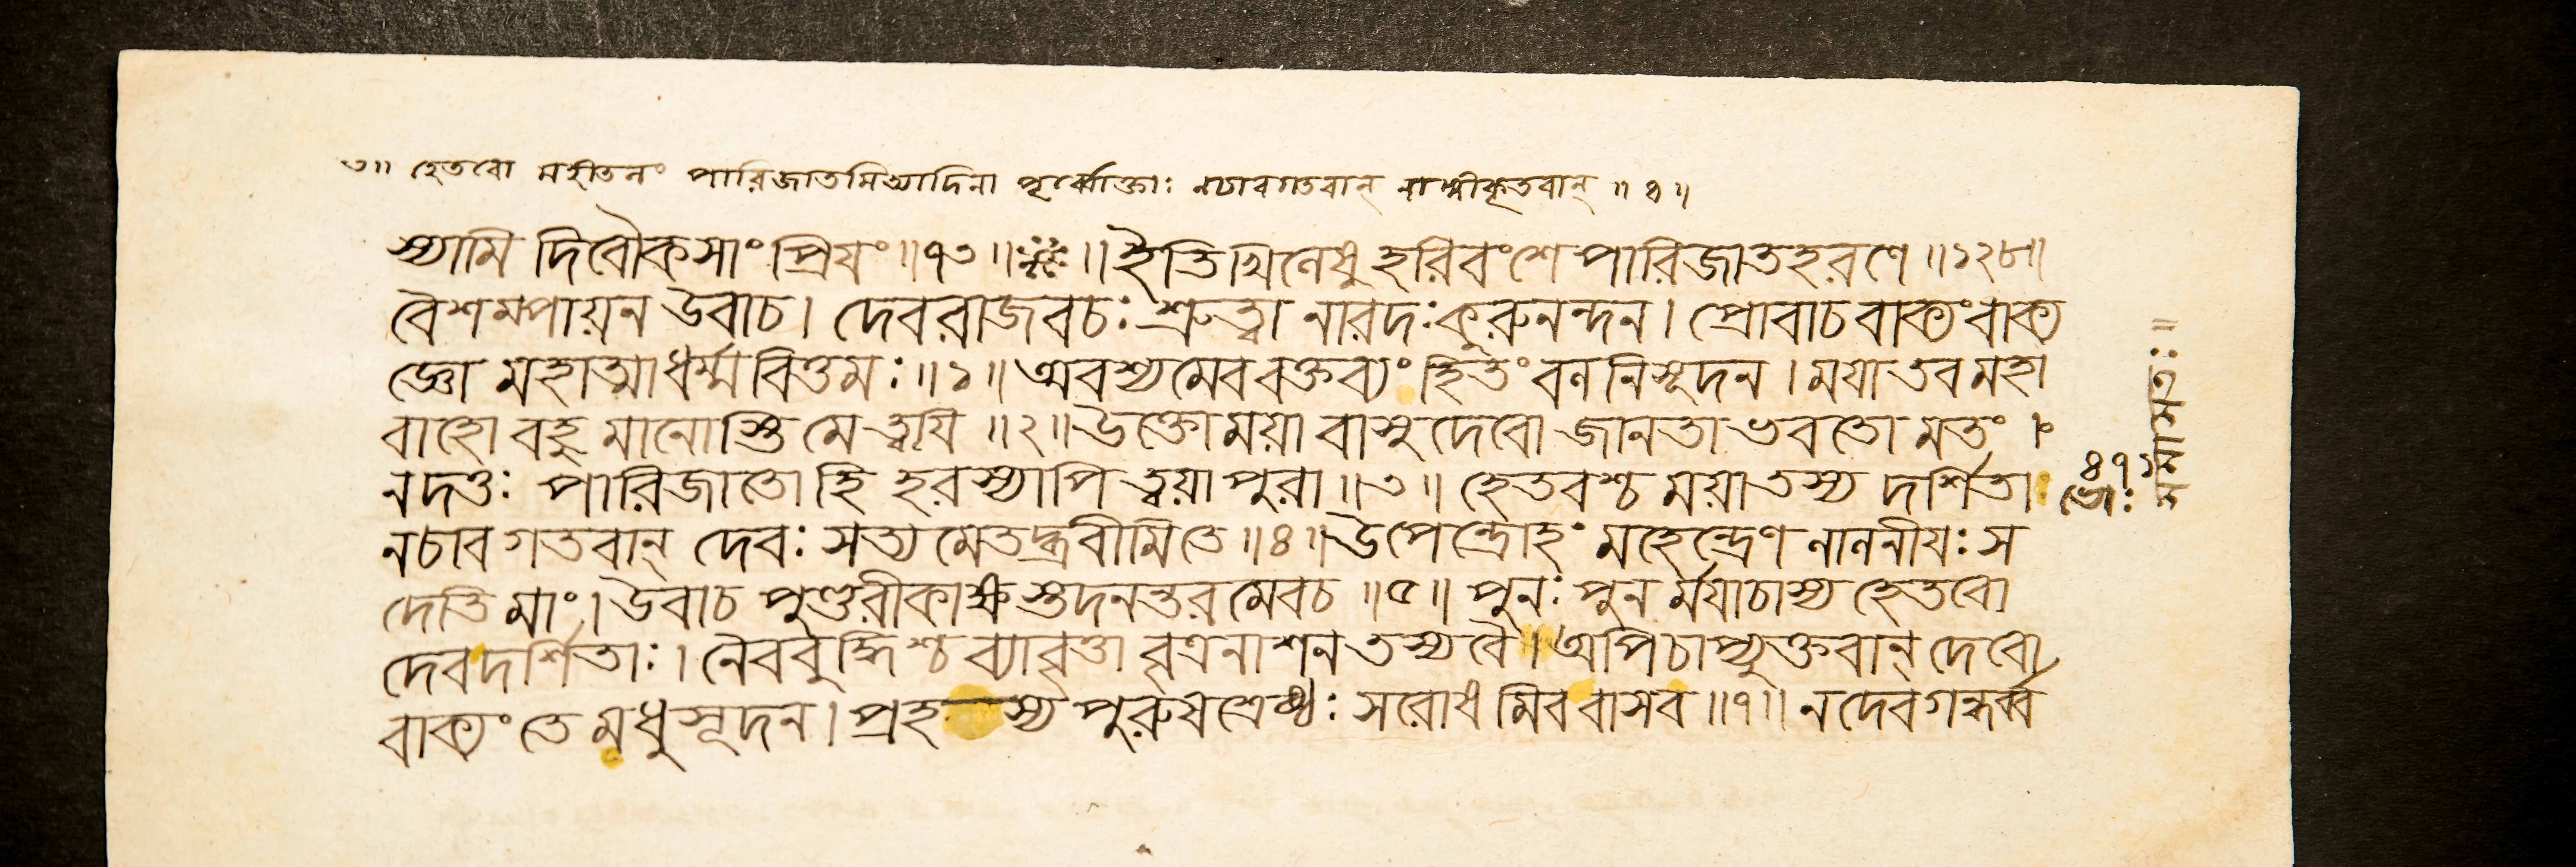 ৩॥ হেতবো মহীতনং পারিজাতমিত্যাদিনা পূর্ব্বোক্তাঃ নচাবগতবান্ নাঙ্গীকৃতবান্ ॥ ৪ ॥
স্যামি দিবৌকসাং প্রিযং ॥ ৭৩ ॥ ॥ ইতি খিলেষু হরিবংশে পারিজাতহরণে ॥ ১২৮ ॥
বৈশমপায়ন উবাচ । দেবরাজবচঃ শ্রুত্বা নারদঃ কুরুনন্দন । প্রোবাচ বাক্যং বাক্য
জ্ঞো মহাত্মা ধর্ম্মবিত্তমঃ ॥ ১ ॥ অবশ্যমেব বক্তব্যং হিতং বলনিসূদন । ময়া তব মহা
বাহো বহুমানোস্তি মে ত্বযি ॥ ২ ॥ উক্তো ময়া বাসুদেবো জানতা ভবতো মতং ।
ন দত্তঃ পারিজাতো হি হরস্যাপি ত্বয়া পুরা ॥ ৩ ॥ হেতবশ্চ ময়া তস্য দর্শিতা
ন চাবগতবান্ দেবঃ সত্যমেতদ্ব্রবীমি তে ॥ ৪ ॥ উপেন্দ্রোহং মহেন্দ্রেণ লালনীযঃ স
দেতি মাং । উবাচ পুণ্ডরীকাক্ষস্তদনন্তরমেবচ ॥ ৫ ॥ পুনঃ পুনর্ময়াচাস্য হেতবো
দেবদর্শিতাঃ । নৈব বুদ্ধিশ্চ ব্যাবৃত্তা বৃত্রনাশন তস্য বৈ । অপিচাপ্যুক্তবান্ দেবো
বাক্যং তে মধুসূদন । প্রহস্য পুরুষশ্রেষ্ঠঃ সরোষমিব বাসব ॥ ৭ ॥ ন দেবগন্ধর্ব্ব